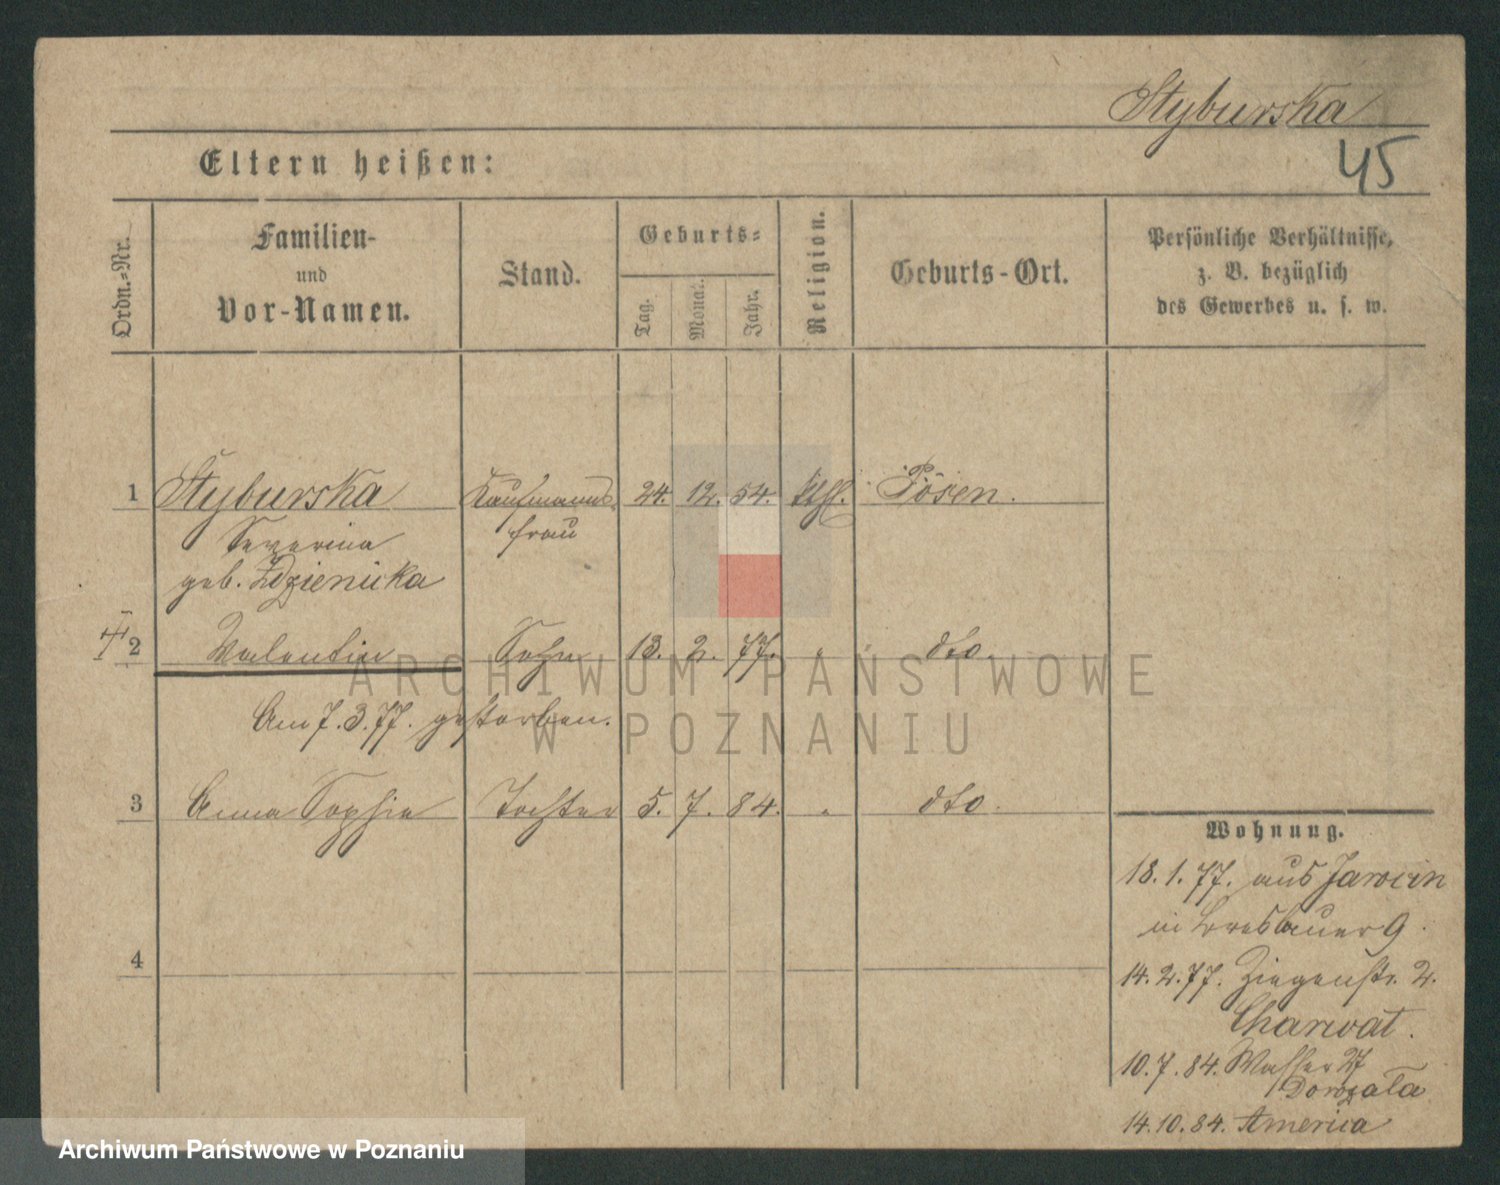 Styburska
45
Eltern heißen:
Ordn.-Nr.
Familien-
und
Vor-Namen.
Stand.
Geburts-
Tag.
Monat.
Jahr.
Religion.
Geburts-Ort.
Persönliche Verhältnisse,
z. B. bezüglich
des Gewerbes u. s. w.
1 Styburska Kaufmanns- 24. 12. 54. kthl. Posen.
Severina frau
geb. Zdzienicka
2 Valentin Sohn 13. 2. 77. " " dto.
Am 7. 3. 77. gestorben.
3 Anna Sophie Tochter 5. 7. 84. " dto.
4
Wohnung.
18. 1. 77. aus Jarocin
in Breslauer 9.
14. 2. 77. Ziegenstr. 2.
Charwat.
10. 7. 84. Wasser 27
14. 10. 84. America
ARCHIWUM PAŃSTWOWE
W POZNANIU
Archiwum Państwowe w Poznaniu